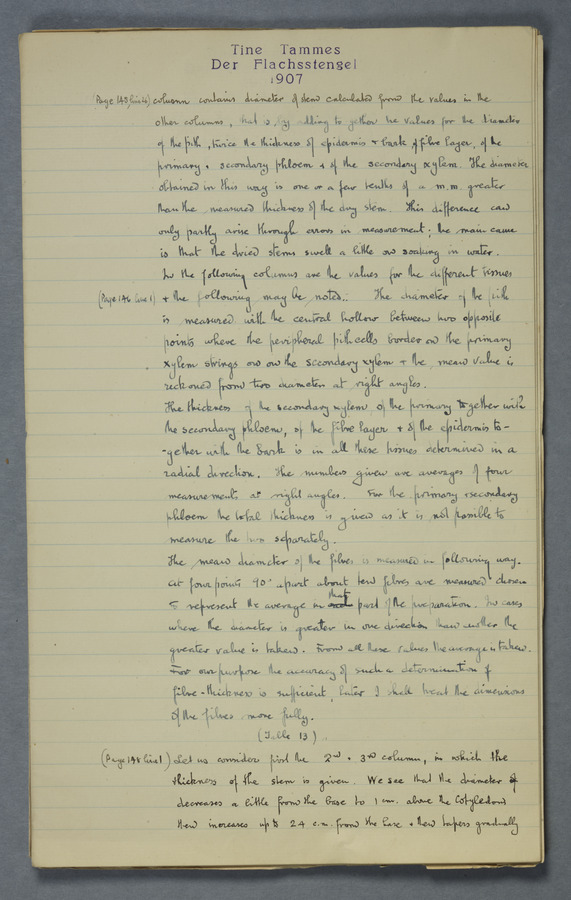 Tine Tammes
Der Flachsstengel
1907
(Page 143, line 6) column contains diameter of stem calculated from the values in the
other columns, that is by adding to gether the values for the diameter
of the pith, twice the thickness of epidermis + bark of fibre layer, of the
primary + secondary phloem + of the secondary xylem. The diameter
obtained in this way is one or a few tenths of a m.m. greater
than the measured thickness of the dry stem. This difference can
only partly arise through errors in measurement; the main cause
is that the dried stems swell a little on soaking in water.
In the following columns are the values for the different tissues
(Page 146 line 1) + the following may be noted.. The diameter of the pith
is measured with the central hollow between two opposite
points where the peripheral pith cells border on the primary
xylem strings or on the secondary xylem + the mean value is
reckoned from two diameters at right angles.
The thickness of the secondary xylem of the primary together with
the secondary phloem, of the fibre layer + of the epidermis to-
-gether with the bark is in all these tissues determined in a
radial direction. The numbers given are averages of four
measurements at right angles. For the primary + secondary
phloem the total thickness is given as it is not possible to
measure the two separately.
The mean diameter of the fibres is measured in following way.
at four points 90° apart about ten fibres are measured chosen
to represent the average in that part of the preparation. In cases
where the diameter is greater in one direction than another the
greater value is taken. From all these values the average is taken.
For our purpose the accuracy of such a determination of
fibre-thickness is sufficient, later I shall treat the dimensions
of the fibres more fully.
(Table 13)..
(Page 148 line 1) Let us consider first the 2nd + 3rd column, in which the
thickness of the stem is given. We see that the diameter
decreases a little from the base to 1 cm. above the Cotyledons
then increases up to 24 c.m. from the base + then tapers gradually